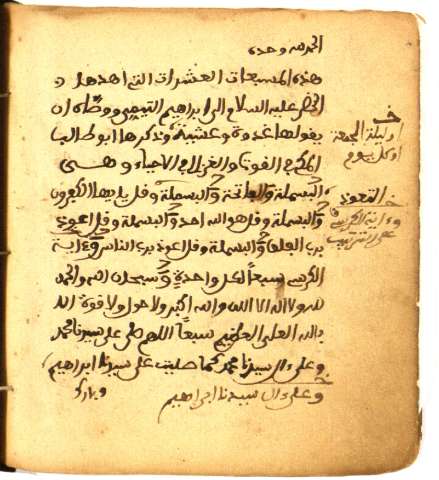 الحمد لله وحده
هذه المسبعات العشرات التي اهدها
الخضر عليه السلام الى ابراهيم التيمي ووصّاه ان
يقولها غدوة وعشية وذكرها ابو طالب
المكي في القوت والغزالي في الاحياء وهـــي
البسملة والفاتحة والبسملة وقل يايها الكفرون
والبسملة وقل هو الله احد والبسملة وقل اعوذ
برب الفلق والبسملة وقل اعوذ برب الناس وءاية
الكرسي سبعاً لكل واحدة وسبحان الله والحمد
لله ولا اله الا الله والله اكبر ولا حول ولا قوة الا
بالله العلي العظيم سبعاً اللهم صل على سيدنا محمد
وعلى ءال سيدنا محمد كما صليت على سيدنا ابراهيم
وعلى ءال سيدنا ابراهيم
وبارك
خ
او ليلة الجمعة
او كل يوم
خ التعوذ
وءاية الكرسي
على الترتيب